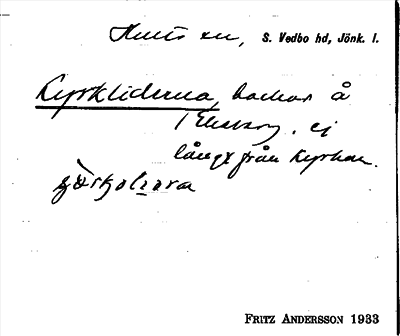 Hults sn, S. Vedbo hd, Jönk. l.
Kyrkliderna, backar å
Ekeberg, ej
långt från kyrkan.
FRITZ ANDERSSON 1933